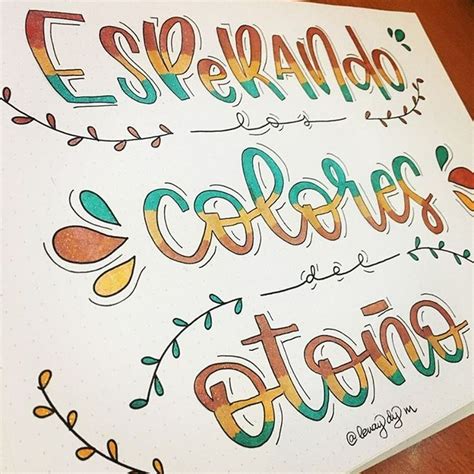 ESPeRANdo
los
colores
del
otoño